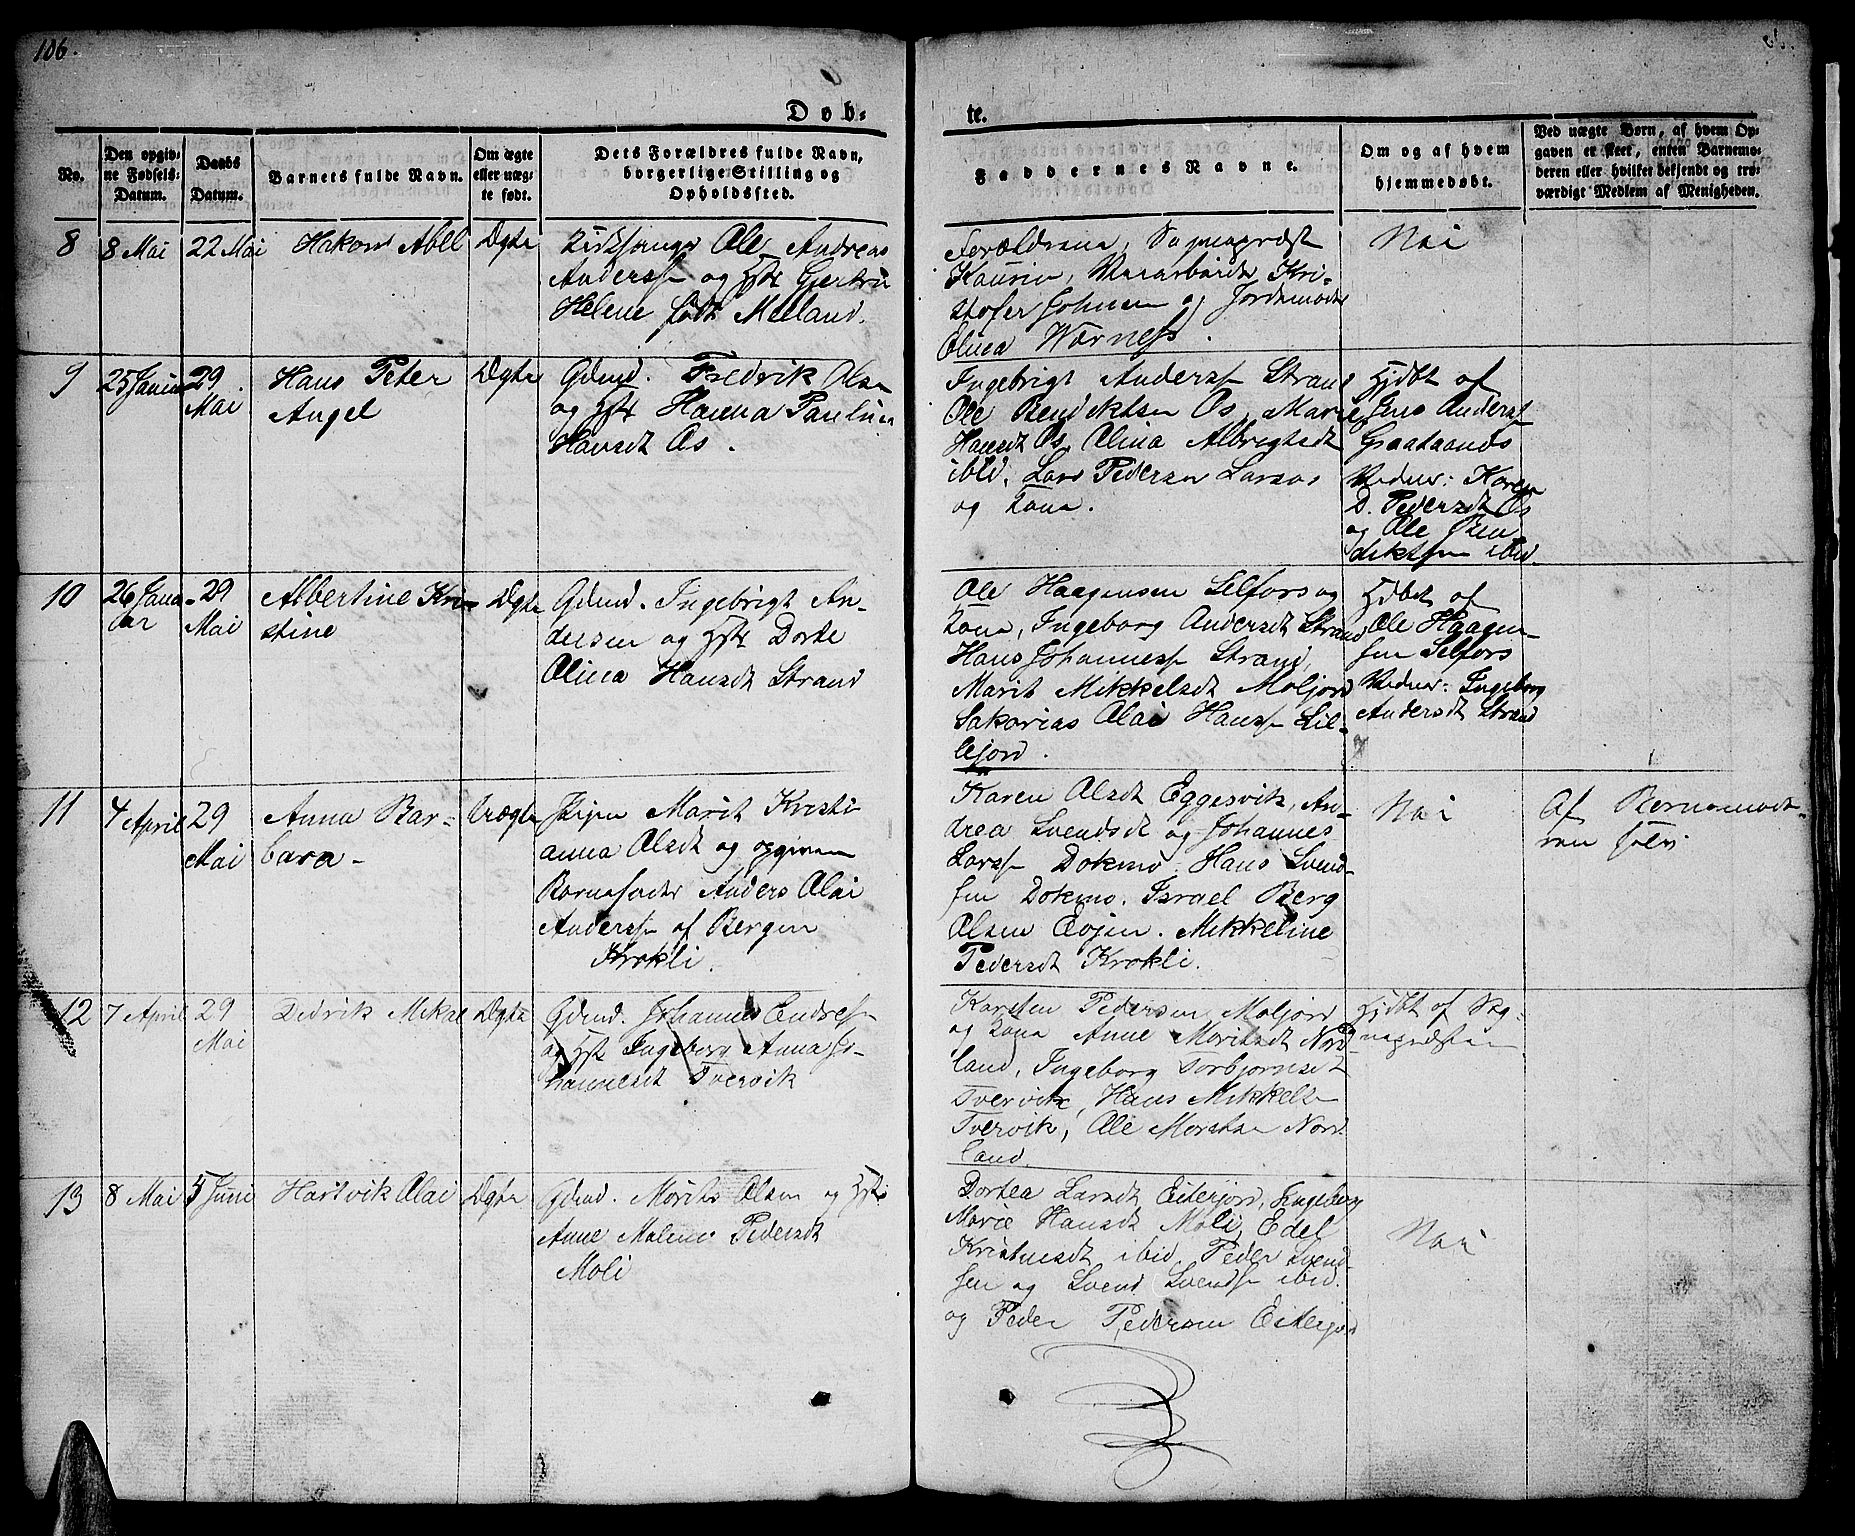 106.
Døb=
te.
No.
Den opgiv=
ne Fødsels=
Datum.
Daabs
Datum.
Barnets fulde Navn.
Om ægte
eller uæg=
te født.
Dets Forældres fulde Navn,
borgerlige Stilling og
Opholdssted.
Faddernes Navne.
Om og af hvem
hjemmedøbt.
Ved uægte Børn, af hvem Op=
gaven er skeet, enten Barnemo=
deren eller hvilket bekjendt og tro=
værdigt Medlem af Menigheden.
8
8 Mai
22 Mai
Hakon Abel
Ægte
Kirksanger Ole Andreas
Anderss og Hst Gjertru
Helene født Meland.
Forældrene, Sognepræst
Kaurin, Kri-
stofer Johnsen og Jordemoder
Elina Wærness.
Nei
9
25 Januar
29
Mai
Hans Peter
Angel
Ægte
Gdmd. Fredrik Olsen
og Hst Hanna Pauline
Hansdt Os.
Ingebrigt Anderss Strand
Ole Bendiktsen Os, Marie
Hansdt Os, Alina Albrigtsdt
ibid, Lars Pedersen Larsos
og Kone.
Hjdbt af
Jens Anders
Graataanes
Vidner: Karen
D. Pedersdt Os
og Ole Ben
diktsen ibid.
10
26 Janu
ar
29
Mai
Albertine Kri-
stine
Ægte
Gdmd. Ingebrigt An-
dersen og Hst Dorte
Olina Hansdt Strand
Ole Haagensen Selfors og
Kone, Ingeborg Andersdt Strand
Hans Johanness Strand,
Marit Mikkelsdt Moljord
Sakarias Olai Hanss Lil-
lejord.
Hjdbt af
Ole Haagen-
sen Selfors
Vidner: Ingeborg
Andersdt Strand
11
4 April
29
Mai
Anna Bar-
bara-
Uægte
Pigen Marit Kristi
anna Olsdt og opgiven
Barnefader Anders Olai
Anderss af Bergen
Krokli.
Karen Olsdt Eggesvik, An-
drea Svendsdt og Johannes
Larss Dokmo. Hans Svend-
sen Dokmo. Israel Berg
Olsen Evjen. Mikkeline
Pedersdt Krokli.
Nei
Af Barnemode-
ren selv
12
7 April
29
Mai
Didrik Mikal
Ægte
Gdmd. Johannes Endress
og Hst Ingeborg Anna Jo-
hannesdt Tvervik
Karsten Pedersen Moljord
og Kone Anne Moritsdt Nord
land, Ingeborg Torbjørnsdt
Tvervik, Hans Mikkelsen
Tvervik, Ole Moritsen Nord
land.
Hjdbt af Sog-
nepræsten
13
8 Mai
5 Juni
Hartvik Olai
Ægte
Gdmd. Morits Olsen og Hst
Anne Malene Pedersdt
Moli
Dortea Larsdt Eiterjord, Ingeborg
Marie Hansdt Moli, Edel
Kristensdt ibid, Peder Svend-
sen og Svend Svends ibid.
og Peder Pedersen Eiterjord
Nei